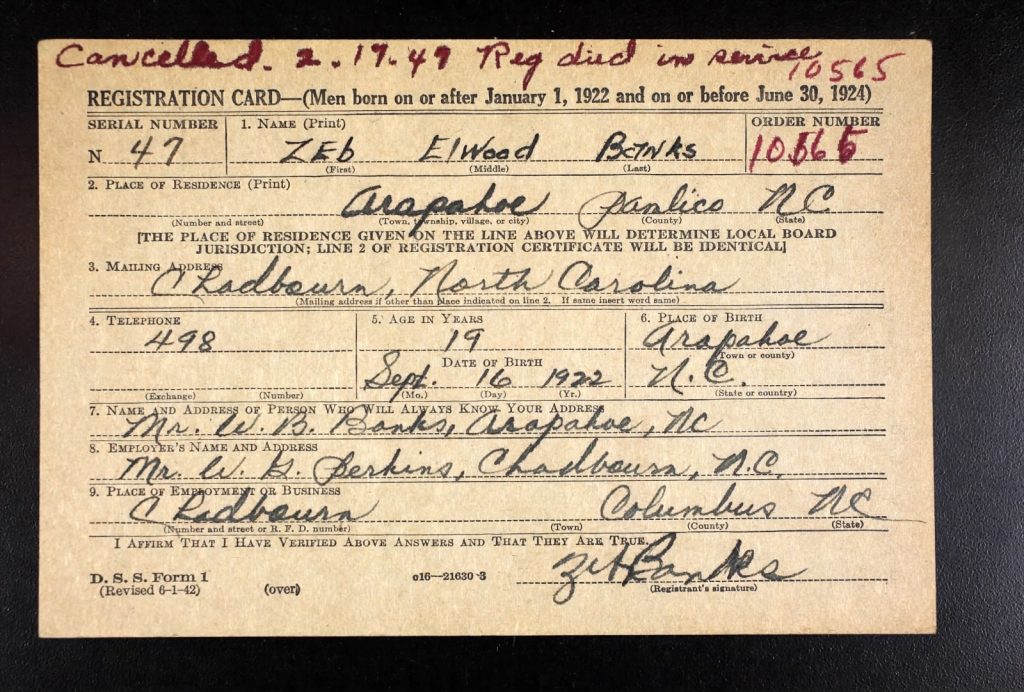 Cancelled. 2.17.47 Reg died in service
10565
REGISTRATION CARD—(Men born on or after January 1, 1922 and on or before June 30, 1924)
SERIAL NUMBER
1. NAME (Print)
ORDER NUMBER
N 47
ZEb Elwood BaNKs
10565
(First) (Middle) (Last)
2. PLACE OF RESIDENCE (Print)
Arapahoe Pamlico NC
(Number and street) (Town, township, village, or city) (County) (State)
[THE PLACE OF RESIDENCE GIVEN ON THE LINE ABOVE WILL DETERMINE LOCAL BOARD
JURISDICTION; LINE 2 OF REGISTRATION CERTIFICATE WILL BE IDENTICAL]
3. MAILING ADDRESS
Chadbourn, North Carolina
(Mailing address if other than place indicated on line 2. If same insert word same)
4. TELEPHONE
498
(Exchange) (Number)
5. AGE IN YEARS
19
DATE OF BIRTH
Sept. 16 1922
(Mo.) (Day) (Yr.)
6. PLACE OF BIRTH
Arapahoe
(Town or county)
N.C.
(State or country)
7. NAME AND ADDRESS OF PERSON WHO WILL ALWAYS KNOW YOUR ADDRESS
Mr. W. B. Banks, Arapahoe, NC
8. EMPLOYER'S NAME AND ADDRESS
Mr. W. G. Perkins, Chadbourn, N.C.
9. PLACE OF EMPLOYMENT OR BUSINESS
Chadbourn Columbus NC
(Number and street or R. F. D. number) (Town) (County) (State)
I AFFIRM THAT I HAVE VERIFIED ABOVE ANSWERS AND THAT THEY ARE TRUE.
Zeb Banks
D. S. S. Form 1
(Revised 6-1-42) (over) c16—21630-3 (Registrant's signature)